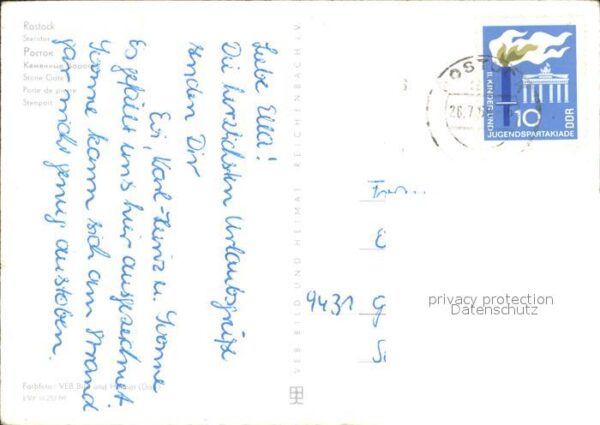 Rostock
Steintor
Росток
Каменные ворота
Stone Gate
Porte de pierre
Stenport
Liebe Ella!
Die herzlichsten Urlaubsgrüße
senden Dir
Evi, Karl-Heinz u. Yvonne
Es gefällt uns hier ausgezeichnet
Yvonne kann sich am Strand
gar nicht genug austoben.
Farbfoto: VEB Bild und Heimat
VEB BILD UND HEIMAT REICHENBACH I. V.
II. KINDER- UND
JUGENDSPARTAKIADE
10
DDR
26.7.
9431
privacy protection
Datenschutz